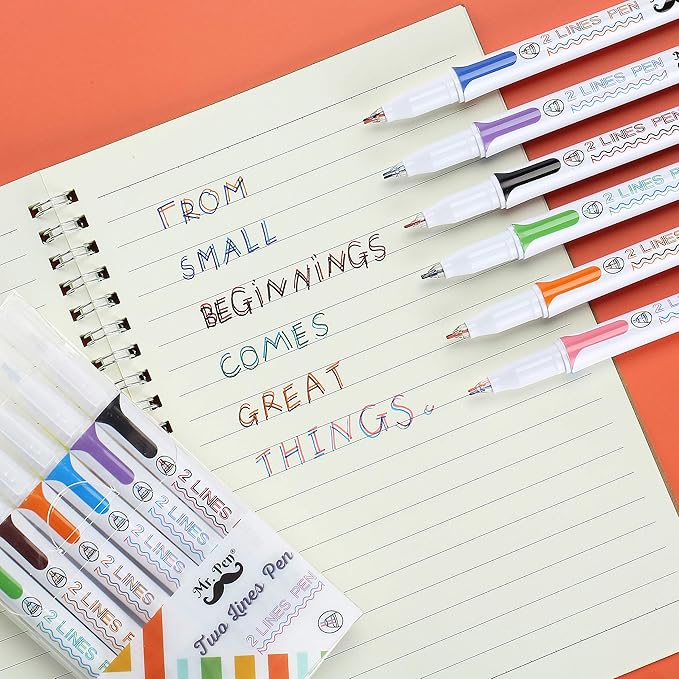 2 LINES PEN
2 LINES PEN
2 LINES PEN
2 LINES PEN
2 LINES PEN
2 LINES PEN
FROM
SMALL
BEGINNINGS
COMES
GREAT
THINGS.
2 LINES
2 LINES
2 LINES
2 LINES PEN
2 LINES PEN
Mr. Pen®
Two Lines Pen
2 LINES PEN
Mr. Pen